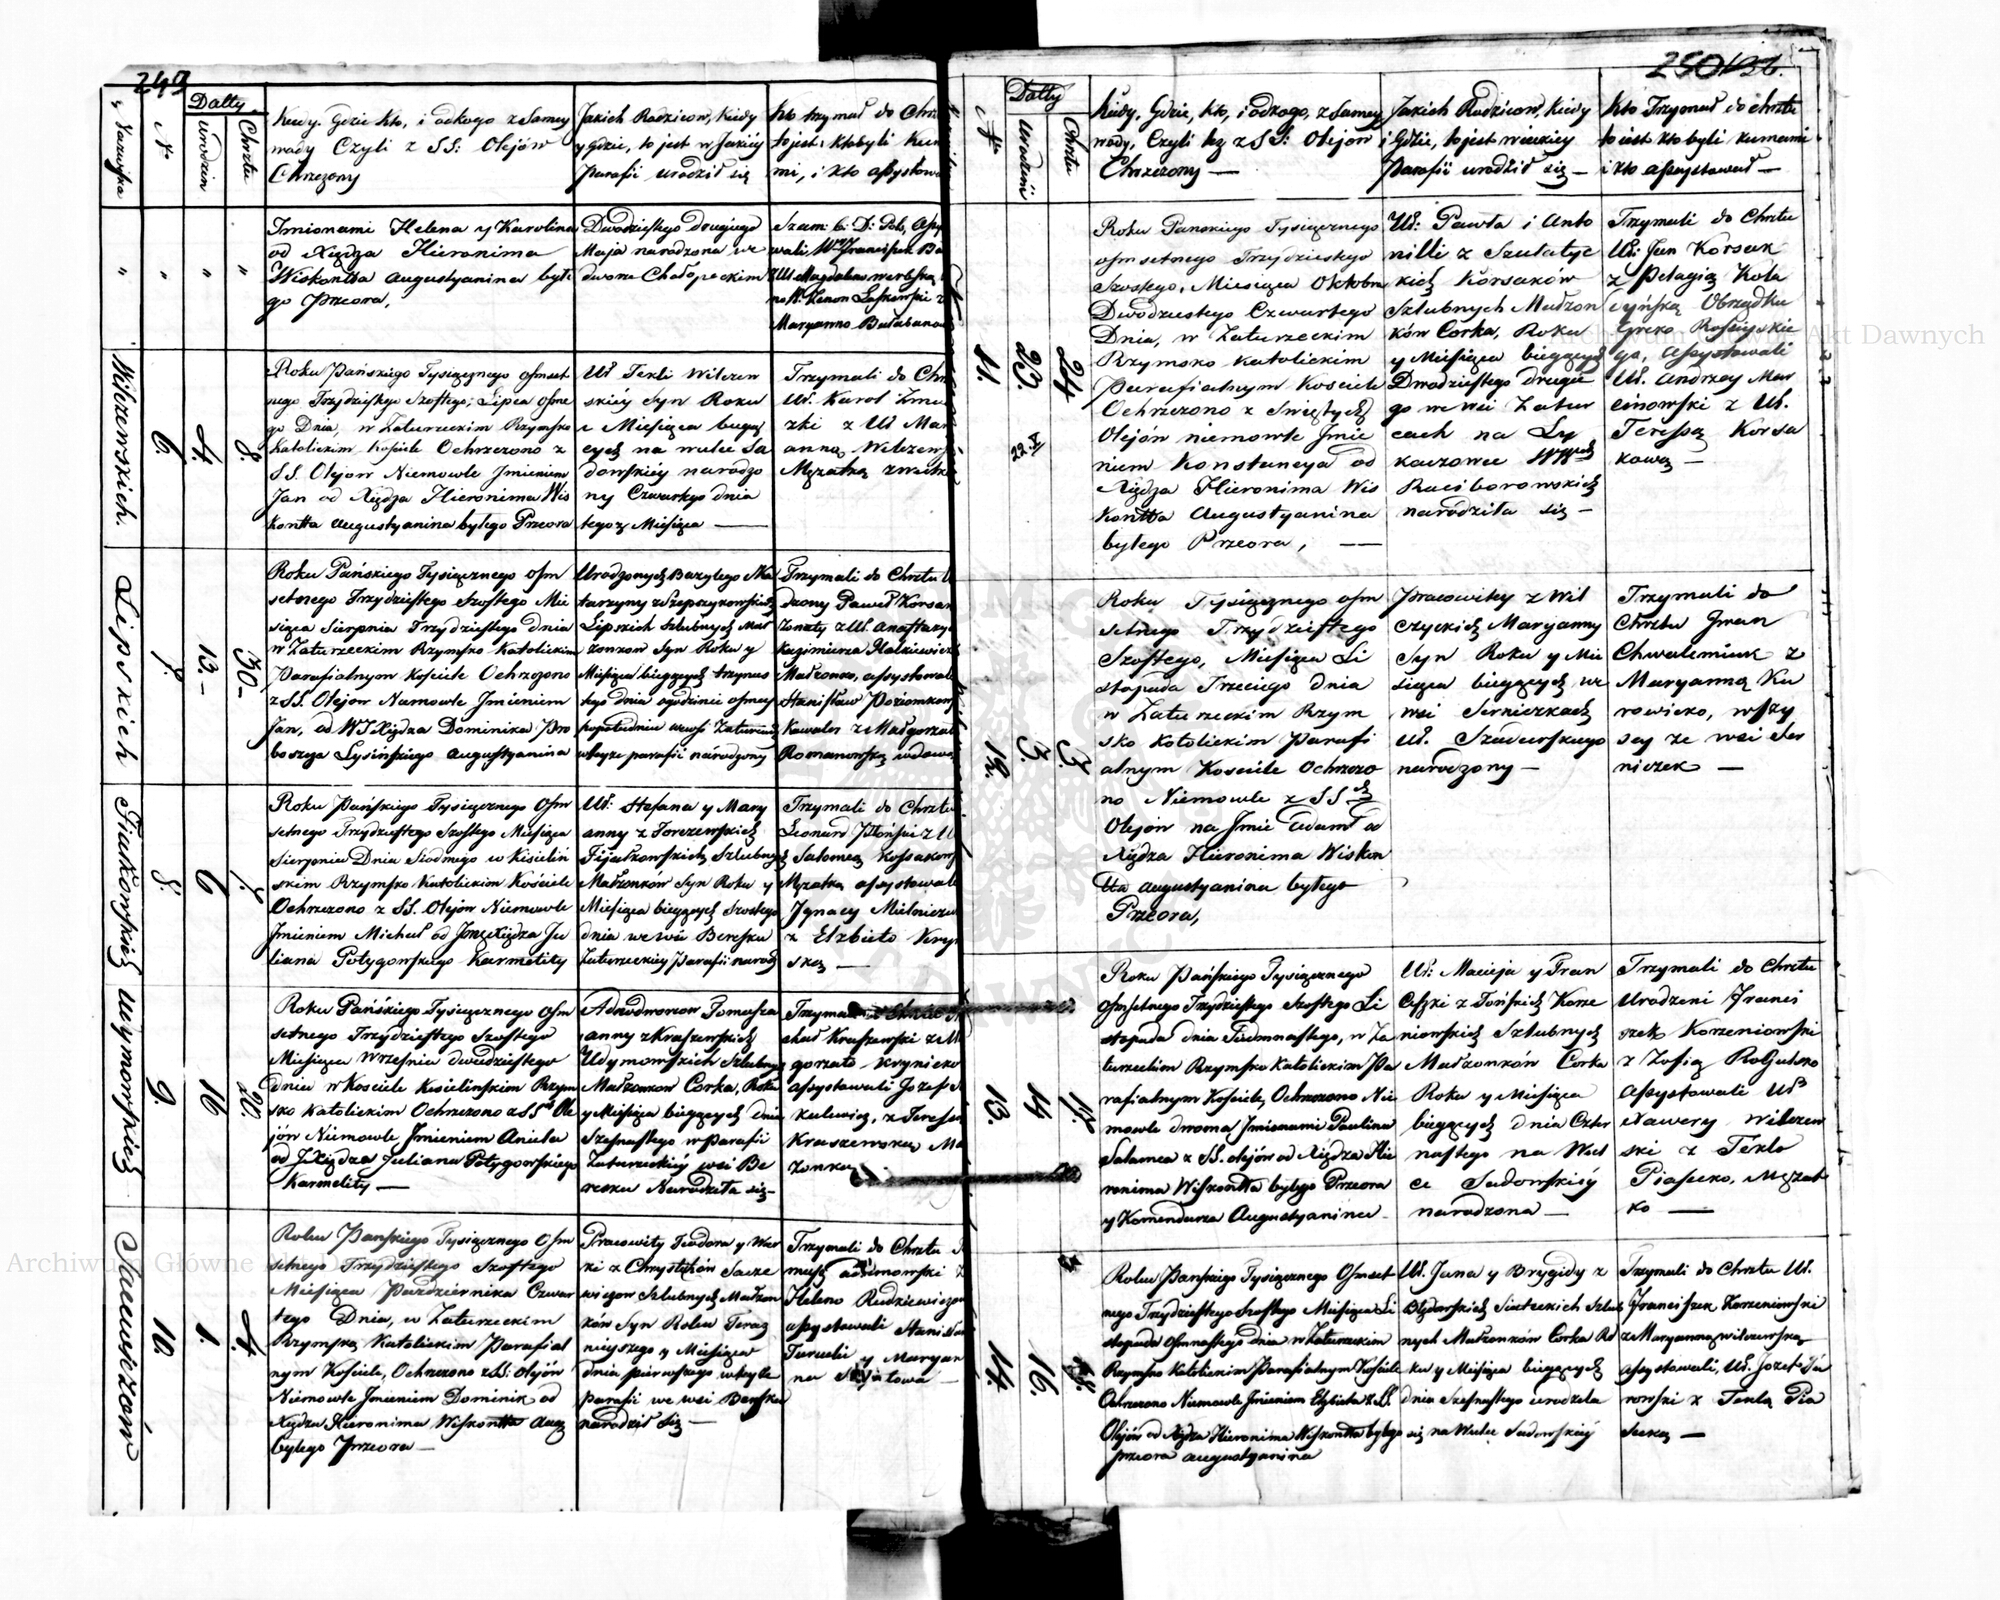 249
Datty
Nazwiska
N
urodzin
Chrztu
Kiedy. Gdzie kto, i od kogo z Samey
wody Czyli z SS: Olejów
Chrzczony
Jakich Rodziców, Kiedy
y Gdzie, to jest w Jakiey
Parafii urodził się
Kto trzymał do Chrz
to jest: kto byli Kum
mi, i kto assystowa
Imionami Helena y Karolina
od Xiędza Hieronima
Wiskontta Augustyanina byłe
go Przeora,
Dwódziestego drugiego
Maja narodzona we
dworze Chołopeckim
Maryanno
Wilczewskich.
6.
4.
8.
Roku Pańskiego Tysiącznego ośmset
nego Trzydziestego Szostego, Lipca ośme
go Dnia, w Zaturzeckim Rzymsko
Katolickim Kościele Ochrzczono z
SS. Olejow Niemowle Imieniem
Jan od Xiędza Hieronima Wis
kontta Augustyanina byłego Przeora
Uł Tekli Wilczew
skiey Syn Roku
i Miesiąca bieżą
cych na wulce Sa
dowskiey narodzo
ny Czwartego dnia
tegoż Miesiąca —
Trzymali do Chr
Uł. Karol
zki z Uł Mar
anną Wilczews
Mężatką
Lipskich
7.
13.-
30-
Roku Pańskiego Tysiącznego ośm
setnego Trzydziestego Szostego Mie
siąca Sierpnia Trzydziestego dnia
w Zaturzeckim Rzymsko Katolickim
Parafialnym Kościele Ochrzczono
z SS. Olejow Niemowle Imieniem
Jan, od WJ Xiędza Dominika Pro
boszcza Łysińskiego Augustyanina
Urodzonych Bazylego Ka
tarzyny z Szepszykowskich
Lipskich Szlubnych Mał
żonkow Syn Roku y
Miesiąca bieżących trzynas
tego dnia o godzinie osmey
popołudniu we wsi Zaturcach
wteyże parafii narodzony
Trzymali do Chrztu U
dzony Paweł Korsak
Żonaty z Uł. Anastazy
Kazimierza
Małżonko, assystowal
Stanisław
Kawaler z Małgorzatą
Romanowską wdową
Fiałkowskich
8.
6
7.
Roku Pańskiego Tysiącznego Ośm
setnego Trzydziestego Szostego Miesiąca
Sierpnia Dnia Siodmego w Kisielin
skim Rzymsko Katolickim Kościele
Ochrzczono z SS. Olejów Niemowle
Imieniem Michał od Jmę Xiędza Ju
liana Potygowskiego Karmelity
Uł: Stefana y Mary
anny z Torczewskich
Fijałkowskich Szlubnych
Małżonków Syn Roku y
Miesiąca bieżących Szostego
dnia we wsi Beresku
Zaturzeckiey Parafii narodz
Trzymali do Chrztu
Leonard
z Salomeą Kossakows
Mężatką assystowali
Ignacy
z Elżbieto
ską —
Udymowskich
9.
16
20.
Roku Pańskiego Tysiącznego Ośm
setnego Trzydziestego Szostego
Miesiąca Września dwudziestego
dnia w Kościele Kisielinskim Rzym
sko Katolickim Ochrzczono z SSch Ole
jów Niemowle Imieniem Aniela
od JXiędza Juliana Potygowskiego
Karmelity —
Adnodworow Tomasza
anny z Kraszewskich
Udymowskich Szlubnych
Małżonkow Corka, Roku
y Miesiąca bieżących dnia
Szesnastego w Parafii
Zaturzeckiey wsi Be
resku Narodziła się-
Trzymali
chał Kraszewski z M
gorzato Krynicko
assystowali Jozef
kulewicz, z Teresą
Kraszewską Ma
żonką
Sacewiczów
10.
1.
4.
Roku Pańskiego Tysiącznego Ośm
setnego Trzydziestego Szostego
Miesiąca Pazdziernika Czwar
tego Dnia, w Zaturzeckim
Rzymską Katolickim Parafial
nym Kościele, Ochrzczono z SS: Olejów
Niemowle Imieniem Dominik od
Xiędza Hieronima Wiskontta Aug
byłego Przeora —
Pracowity Teodora y War
ki z Chrystyków Sace
wiczow Szlubnych Małżon
ków Syn Roku Teraz
nieyszego y Miesiąca
Dnia pierwszego w teyże
parafii we wsi Beresku
narodził się —
Trzymali do Chrztu
Adamowski
Heleno Rudkiewiczow
assystowali Stanisław
y Maryan
na
250
Datty
N
Urodzin
Chrztu
Kiedy, Gdzie, kto, i od kogo, z Samey
wody, Czyli też z SS: Olejow
Chrzczony —
Jakich Rodzicow, Kiedy
i Gdzie, to jest w jakiey
Parafii urodził się —
Kto Trzymał do chrztu
to jest kto byli kumami
i kto assystował —
11.
23.
22.
24
Roku Panskiego Tysiącznego
ośmsetnego Trzydziestego
Szostego, Miesiąca Oktobra
Dwódziestego Czwartego
Dnia, w Zaturzeckim
Rzymsko Katolickim
Parafialnym Kościele
Ochrzczono z Swiętych
Olejów niemowle Imie
niem Konstancya od
Xiędza Hieronima Wis
kontta Augustyanina
byłego Przeora, —
Uł: Pawła i Anto
nilli z Szułatyc
kich Korsaków
Szlubnych Małżon
ków Corka, Roku
y Miesiąca bieżących
Dwodziestego drugie
go we wsi Zatur
cach na Ły
kaczowce WWch
Raciborowskich
narodziła się —
Trzymali do Chrztu
Uł: Jan Korsak
z Pelagią Kola
Obrządku
Greko Rossyiskie
go, assystowali
Uł. Andrzey Mar
cinowski z Uł.
Teressą Korsa
kową —
12.
3.
3.
Roku Tysiącznego ośm
setnego Trzydziestego
Szostego, Miesiąca Li
stopada Trzeciego dnia
w Zaturzeckim Rzym
sko Katolickim Parafi
alnym Kosciele Ochrzczo
no Niemowle z SSch
Olejów na Imie Adam od
Xiędza Hieronima Wiskon
tta Augustyanina byłego
Przeora,
Pracowitey z Wil
czyckich Maryanny
Syn Roku y Mie
siąca bieżących we
wsi Serniczkach
Uł. Szadurskiego
narodzony —
Trzymali do
Chrztu Iwan
Chwalemink z
Maryanną Ku
rowicko, wszy
scy ze wsi Ser
niczek —
13.
14
17.
Roku Pańskiego Tysiącznego
Ośmsetnego Trzydziestego Szostego Li
stopada dnia Siedmnastego, w Za
turzeckim Rzymsko Katolickim Pa
rafialnym Kościele Ochrzczono Nie
mowle dwoma Imionami Paulina
Salomea z SS. olejów od Xiędza Hie
ronima Wiskontta byłego Przeora
y Komendarza Augustyanina —
Uł: Macieja y Fran
ciszki z Tońskich Korze
niowskich Szlubnych
Małżonków Corka
Roku y Miesiąca
bieżących dnia Czter
nastego na Wol
ce Sadowskiey
narodzona —
Trzymali do Chrztu
Urodzeni Franci
szek Korzeniowski
z Zofią
assystowali Uł
Xawery Wilczew
ski z Teklo
Piasecko, Mężat
ko —
14.
16.
18.
Roku Pańskiego Tysiącznego Ośmset
nego Trzydziestego Szostego Miesiąca Li
stopada Ośmnastego dnia w Zaturzeckim
Rzymsko Katolickim Parafialnym Kościele
Ochrzczono Niemowle Imieniem Elzbieta z SS.
Olejów od Xiędza Hieronima Wiskontta byłego
przeora augustyanina
Uł. Jana y Brygidy z
Siateckich Szlub
nych Małżonków Corka Ro
ku y Miesiąca bieżących
dnia Szesnastego urodziła
się na Wulce Sadowskiey
Trzymali do Chrztu Uł.
Franciszek Korzeniowski
z Maryanną Wilczewską
assystowali, Uł. Jozef Ta
rowski z Teklą Pia
secką —
Archiwum Główne Akt Dawnych
Archiwum Główne Akt Dawnych